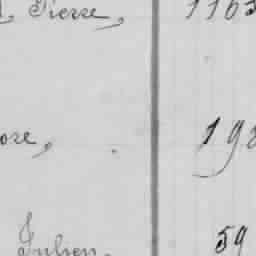 Pierre, 1163
ore, 198
Julien. 59